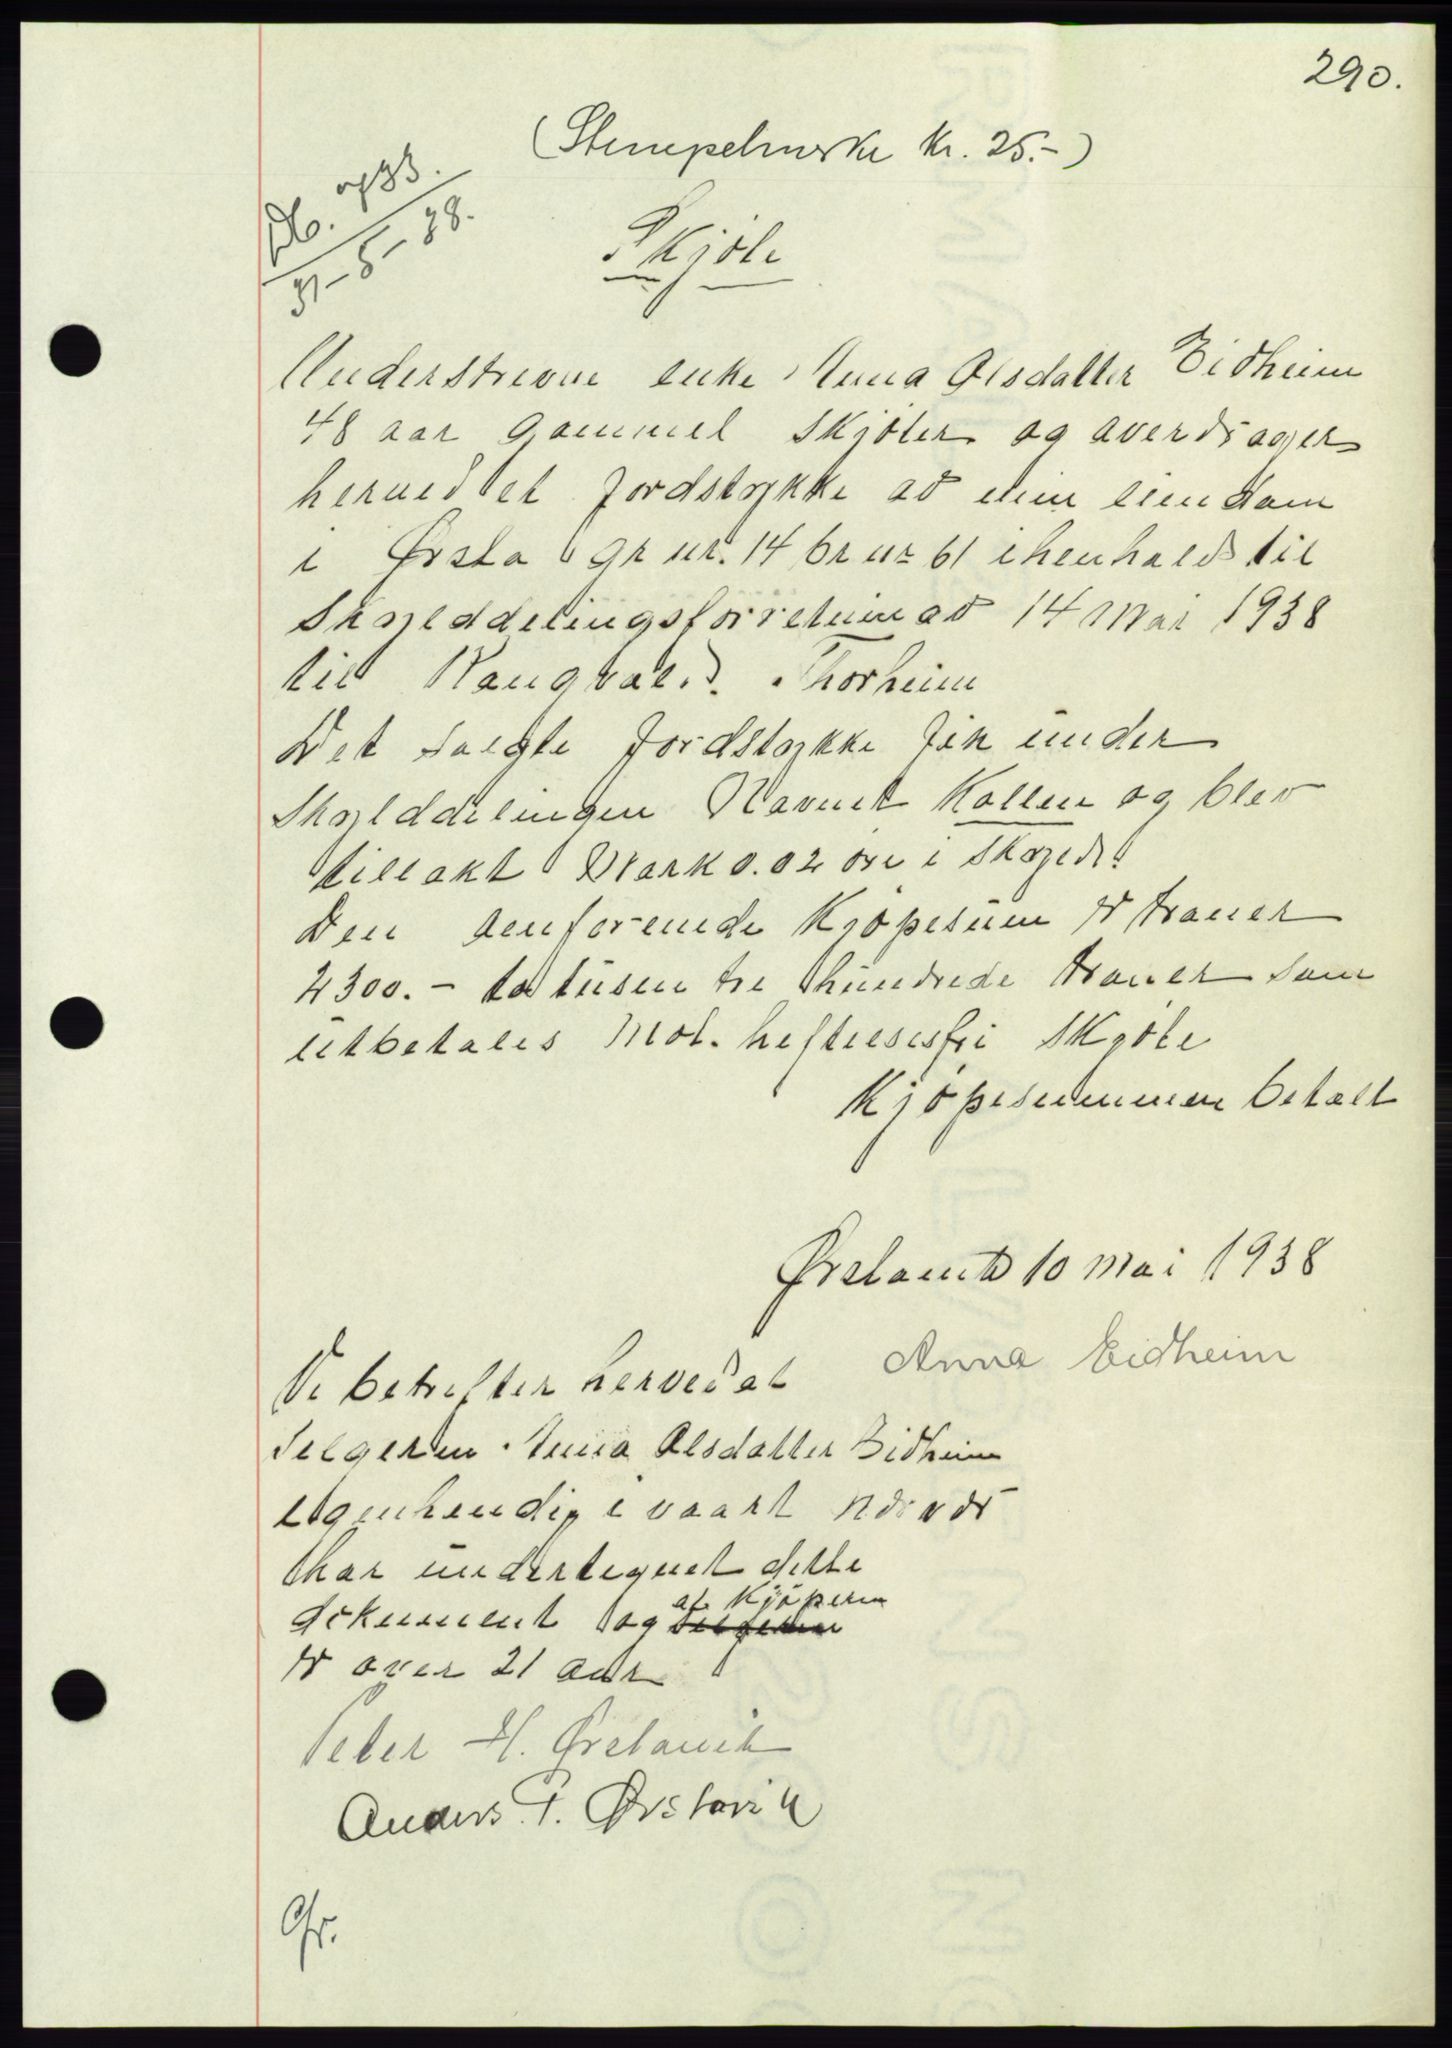 290.
(Stempelmerke kr. 25.-)
Db. 933.
31-5-38.
Skjöte
Understrevne enke Anna Olsdatter Eidheim
48 aar gammel skjöter og averdrager
herved et jordstykke av min eiendom
i Ørsta gr nr. 14 br nr 61 i henhold til
Skylddelingsforretnin av 14 Mai 1938
til Rangvald. Thorheim
Det solgte jordstykke fik under
Skylddelingen Navnet Kollen og blev
tillakt Mark 0.02 øre i Skyld.
Den omforende Kjöpesum er kroner
2300.- to tusen tre hundrede kroner som
utbetales mot. heftelsesfri Skjöte
Kjöpesummen betalt
Ørstavik 10 Mai 1938
Anna Eidheim
Vi betrefter herved at
Selgeren Anna Olsdatter Eidheim
egenhendig i vaart nærvær
har undertegnet dette
at Kjöperen
dokument og selgeren
er over 21 aar
Peter H. Ørstavik
Anders P. Ørstavik